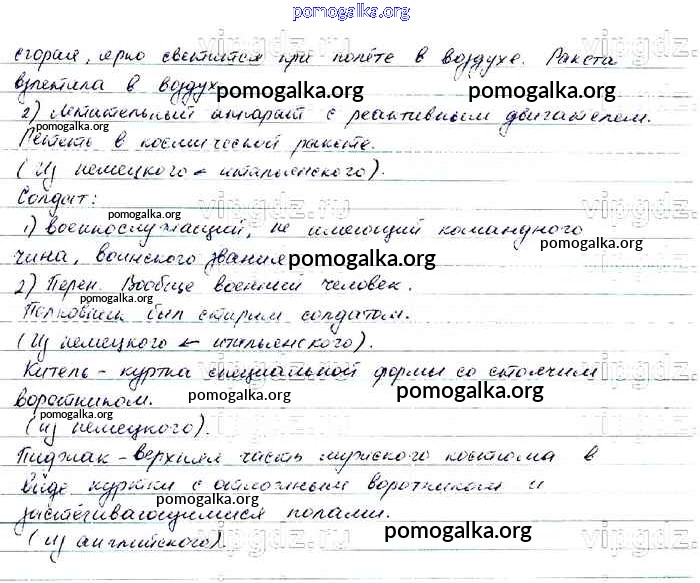 pomogalka.org
сгорая, ярко светится при полёте в воздухе. Ракета
взлетила в воздух.
pomogalka.org
pomogalka.org
2) Летательный аппарат с реактивным двигателем.
pomogalka.org
Лететь в космической ракете.
(Из немецкого ← итальянского).
Солдат:
pomogalka.org
1) военнослужащий, не имеющий командного
pomogalka.org
чина, воинского звания
pomogalka.org
2) Перен. Вообще военный человек.
pomogalka.org
Полковник был старым солдатом.
(Из немецкого ← итальянского).
Китель - куртка специальной формы со стоячим
воротником.
pomogalka.org
pomogalka.org
(из немецкого).
Пиджак - верхняя часть мужского костюма в
виде куртки с отложным воротником и
pomogalka.org
застёгивающимися полами.
pomogalka.org
(Из английского).
vipgdz.com